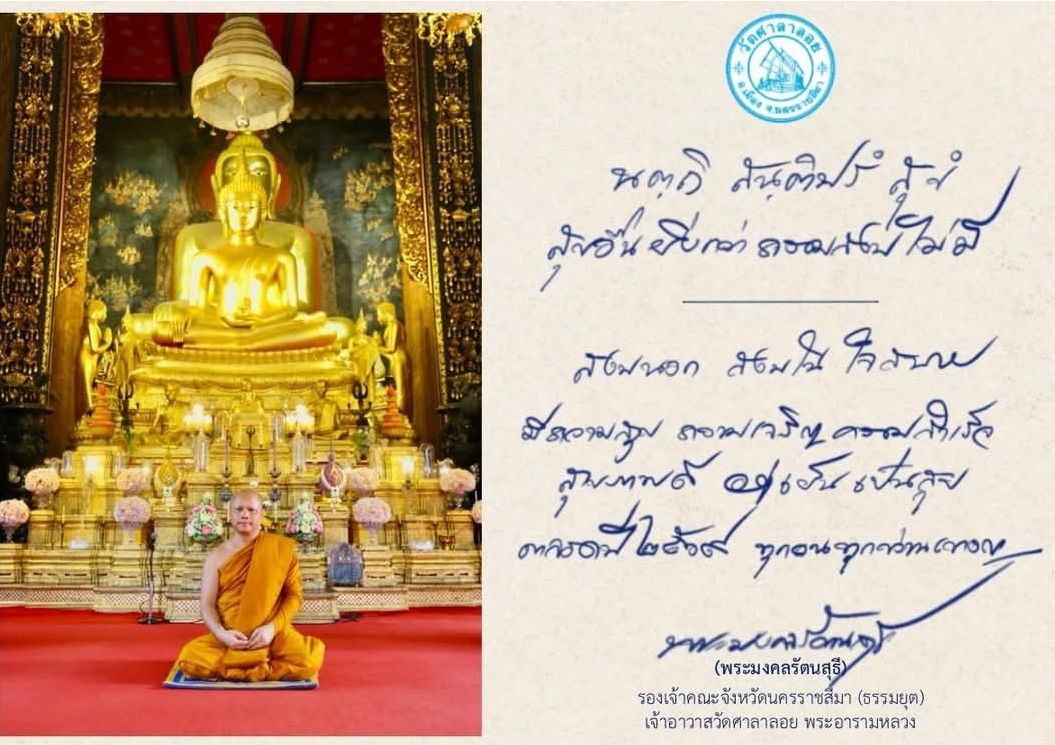 วัดศาลาลอย
อ.เมือง จ.นครราชสีมา
นตฺถิ สนฺติปรํ สุขํ
สุขอื่นยิ่งกว่าความสงบไม่มี
สงบนอก สงบใน ใจสบาย
มีความสุข ความเจริญ ความสำเร็จ
สุขภาพดี อยู่เย็นเป็นสุข
ตลอดปี ๒๕๖๙ ทุกคนทุกท่านเทอญ
พระมงคลรัตนสุธี
(พระมงคลรัตนสุธี)
รองเจ้าคณะจังหวัดนครราชสีมา (ธรรมยุต)
เจ้าอาวาสวัดศาลาลอย พระอารามหลวง